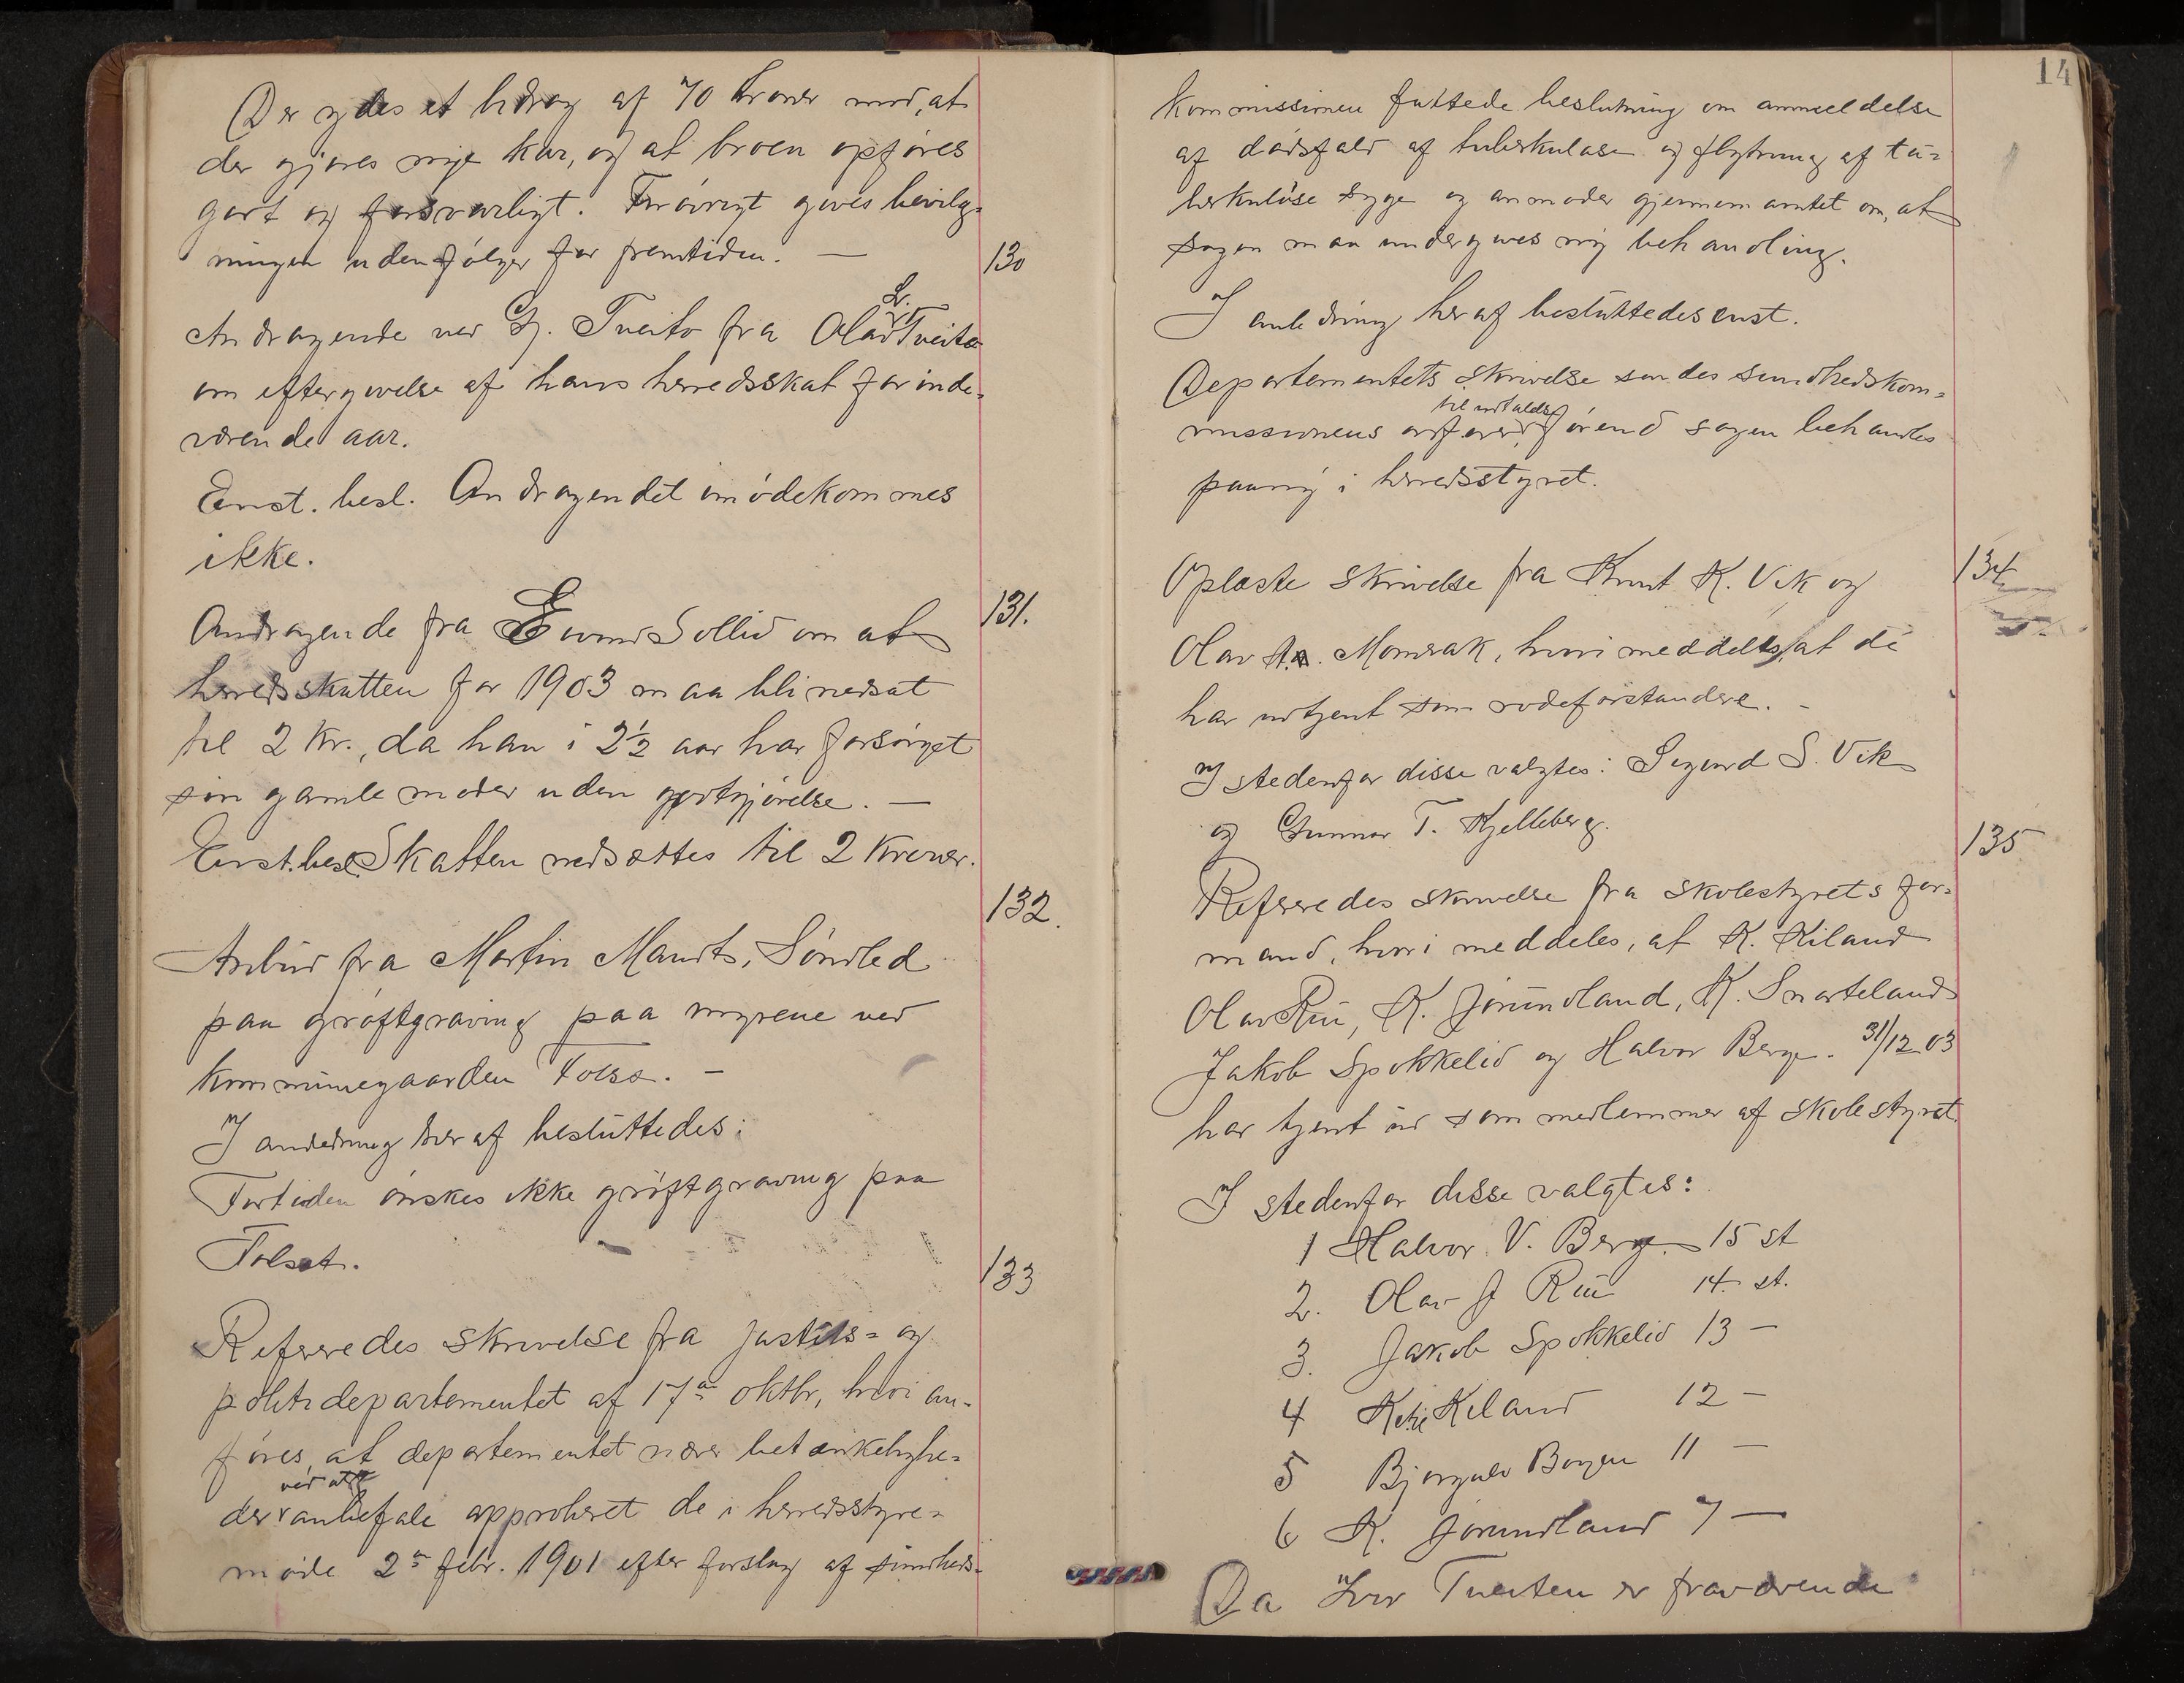 Der ydes et bidrag af 70 kroner mod, at
der gjøres nye kar, og at broen opføres
godt og forsvarligt. Forøvrigt gives bevilg=
ningen uden følger for fremtiden. —
130
Andragende ved G. Tveito fra Olav Sr. Tveito
om eftergivelse af hans herredsskat for inde=
værende aar.
Enst. besl. Andragendet imødekommes
ikke.
131.
Andragende fra Eivind Sollid om at
herredsskatten for 1903 maa bli nedsat
til 2 kr., da han i 2½ aar har forsørget
sin gamle moder uden godtgjørelse. —
Enst. besl. Skatten nedsættes til 2 kroner.
132.
Anbud fra Martin Mandts, Søndled
paa grøftgraving paa myrene ved
kommunegaarden Folsæ. —
I anledning her af besluttedes:
Fortiden ønskes ikke grøftgraving paa
Folsæt.
133
Referedes skrivelse fra justits= og
politidepartementet af 17de oktbr, hvori an=
føres, at departementet nærer betænkelighe=
der ved at anbefale approberet de i herredsstyre=
møde 2den febr. 1901 efter forslag af sundheds=
14
kommissionen fattede beslutning om anmeldelse
af dødsfald af tuberkulose og flytning af tu=
berkuløse syge og anmoder gjennem amtet om, at
sagen maa undergives ny behandling.
I anledning her af besluttedes enst.
Departementets skrivelse sendes sundhedskom=
missionens ordfører til udtalelse, førend sagen behandles
paany i herredsstyret.
134
Oplæste skrivelse fra Knut K. Vik og
Olav A. Momrak, hvori meddeles, at de
har udtjent som rodeforstandere. —
I stedenfor disse valgtes: Sigurd S. Vik
og Gunnar T. Kjelleberg.
135
Referedes skrivelse fra skolestyrets for=
mand, hvori meddeles, at K. Kiland
Olav Rui, K. Jørundland, K. Snarteland
Jakob Spokkelid og Halvor Berge. 31/12 03
har tjent ud som medlemmer af skolestyret.
I stedenfor disse valgtes:
1 Halvor V. Berge 15 st
2. Olav J Rui 14 st.
3. Jakob Spokkelid 13 —
4 Ketil Kiland 12 —
5 Bjørgulv Bøgen 11 —
6 K. Jørundland 7 —
Da Iver Tveiten er fraværende